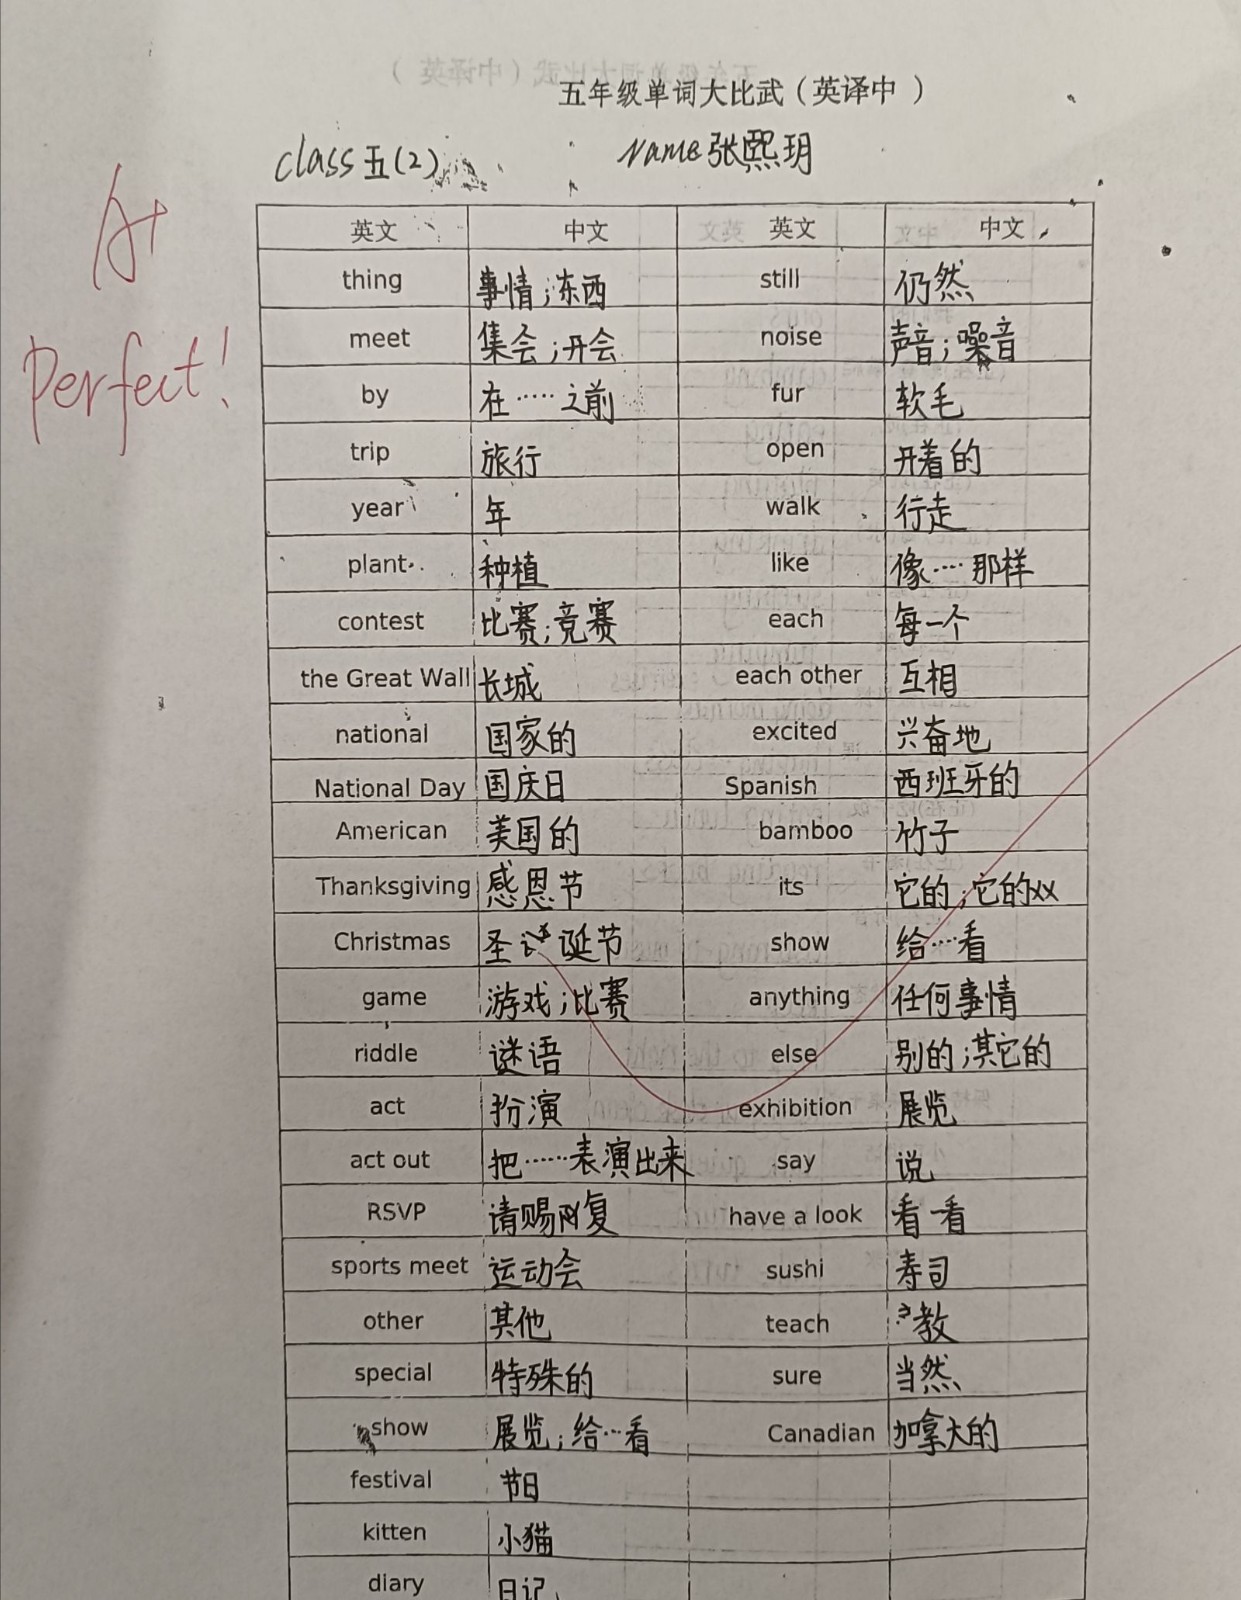 五年级单词大比武（英译中 ）
class 五(2) Name 张熙玥
A+
Perfect!
英文 中文 英文 中文
thing 事情;东西 still 仍然
meet 集会;开会 noise 声音;噪音
by 在……之前 fur 软毛
trip 旅行 open 开着的
year 年 walk 行走
plant 种植 like 像……那样
contest 比赛;竞赛 each 每一个
the Great Wall 长城 each other 互相
national 国家的 excited 兴奋地
National Day 国庆日 Spanish 西班牙的
American 美国的 bamboo 竹子
Thanksgiving 感恩节 its 它的;它的xx
Christmas 圣诞节 show 给……看
game 游戏;比赛 anything 任何事情
riddle 谜语 else 别的;其它的
act 扮演 exhibition 展览
act out 把……表演出来 say 说
RSVP 请赐回复 have a look 看一看
sports meet 运动会 sushi 寿司
other 其他 teach 教
special 特殊的 sure 当然
show 展览;给…看 Canadian 加拿大的
festival 节日
kitten 小猫
diary 日记